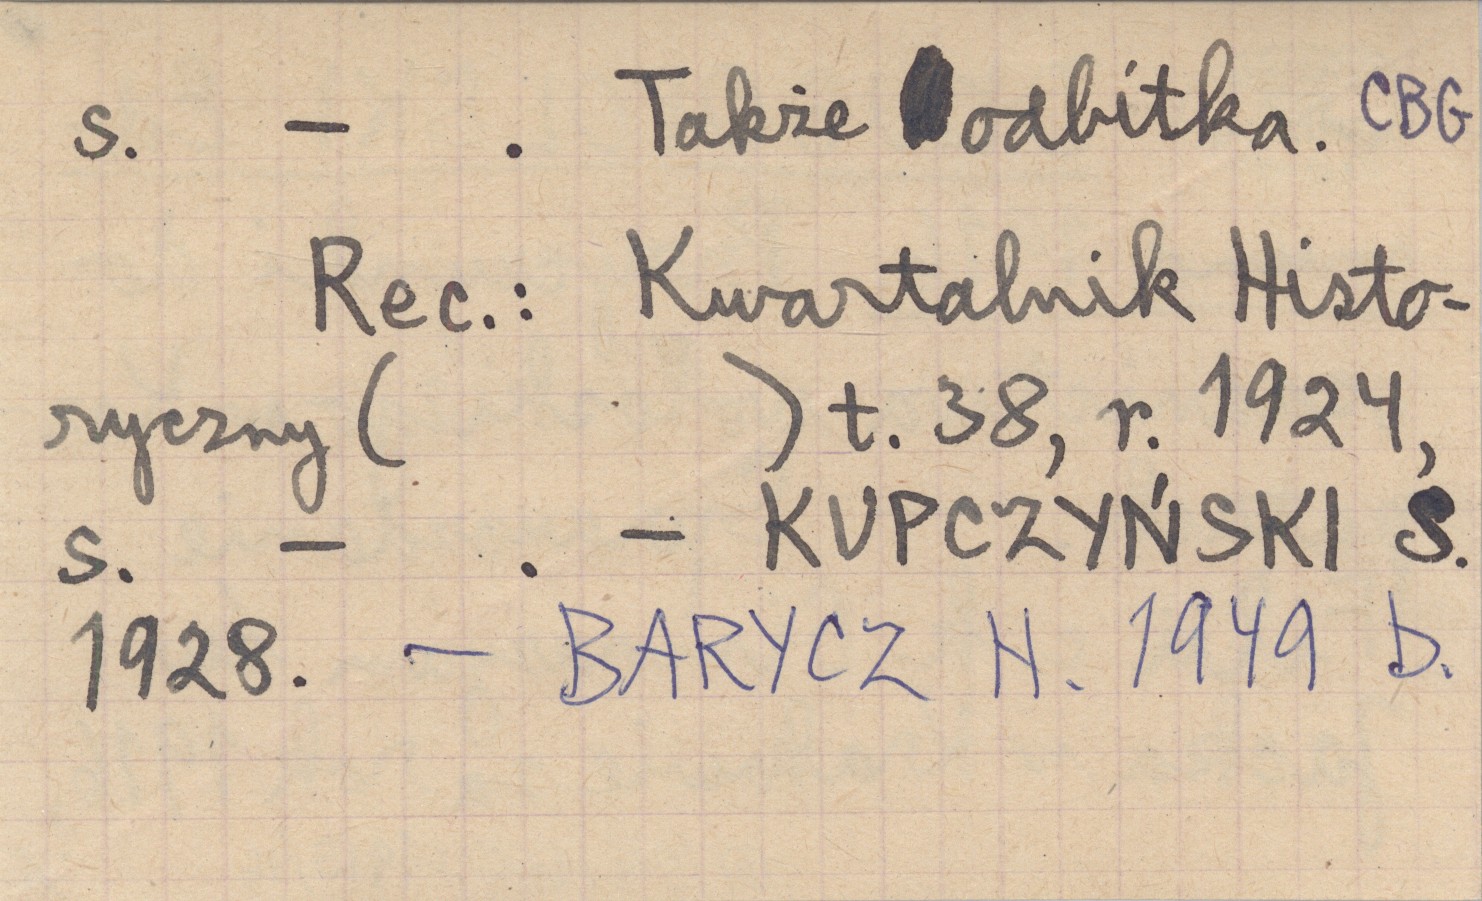 s. – . Także odbitka. CBG
Rec.: Kwartalnik Histo-
ryczny ( ) t. 38, r. 1924,
s. – . – KUPCZYŃSKI S.
1928. – BARYCZ H. 1949 b.